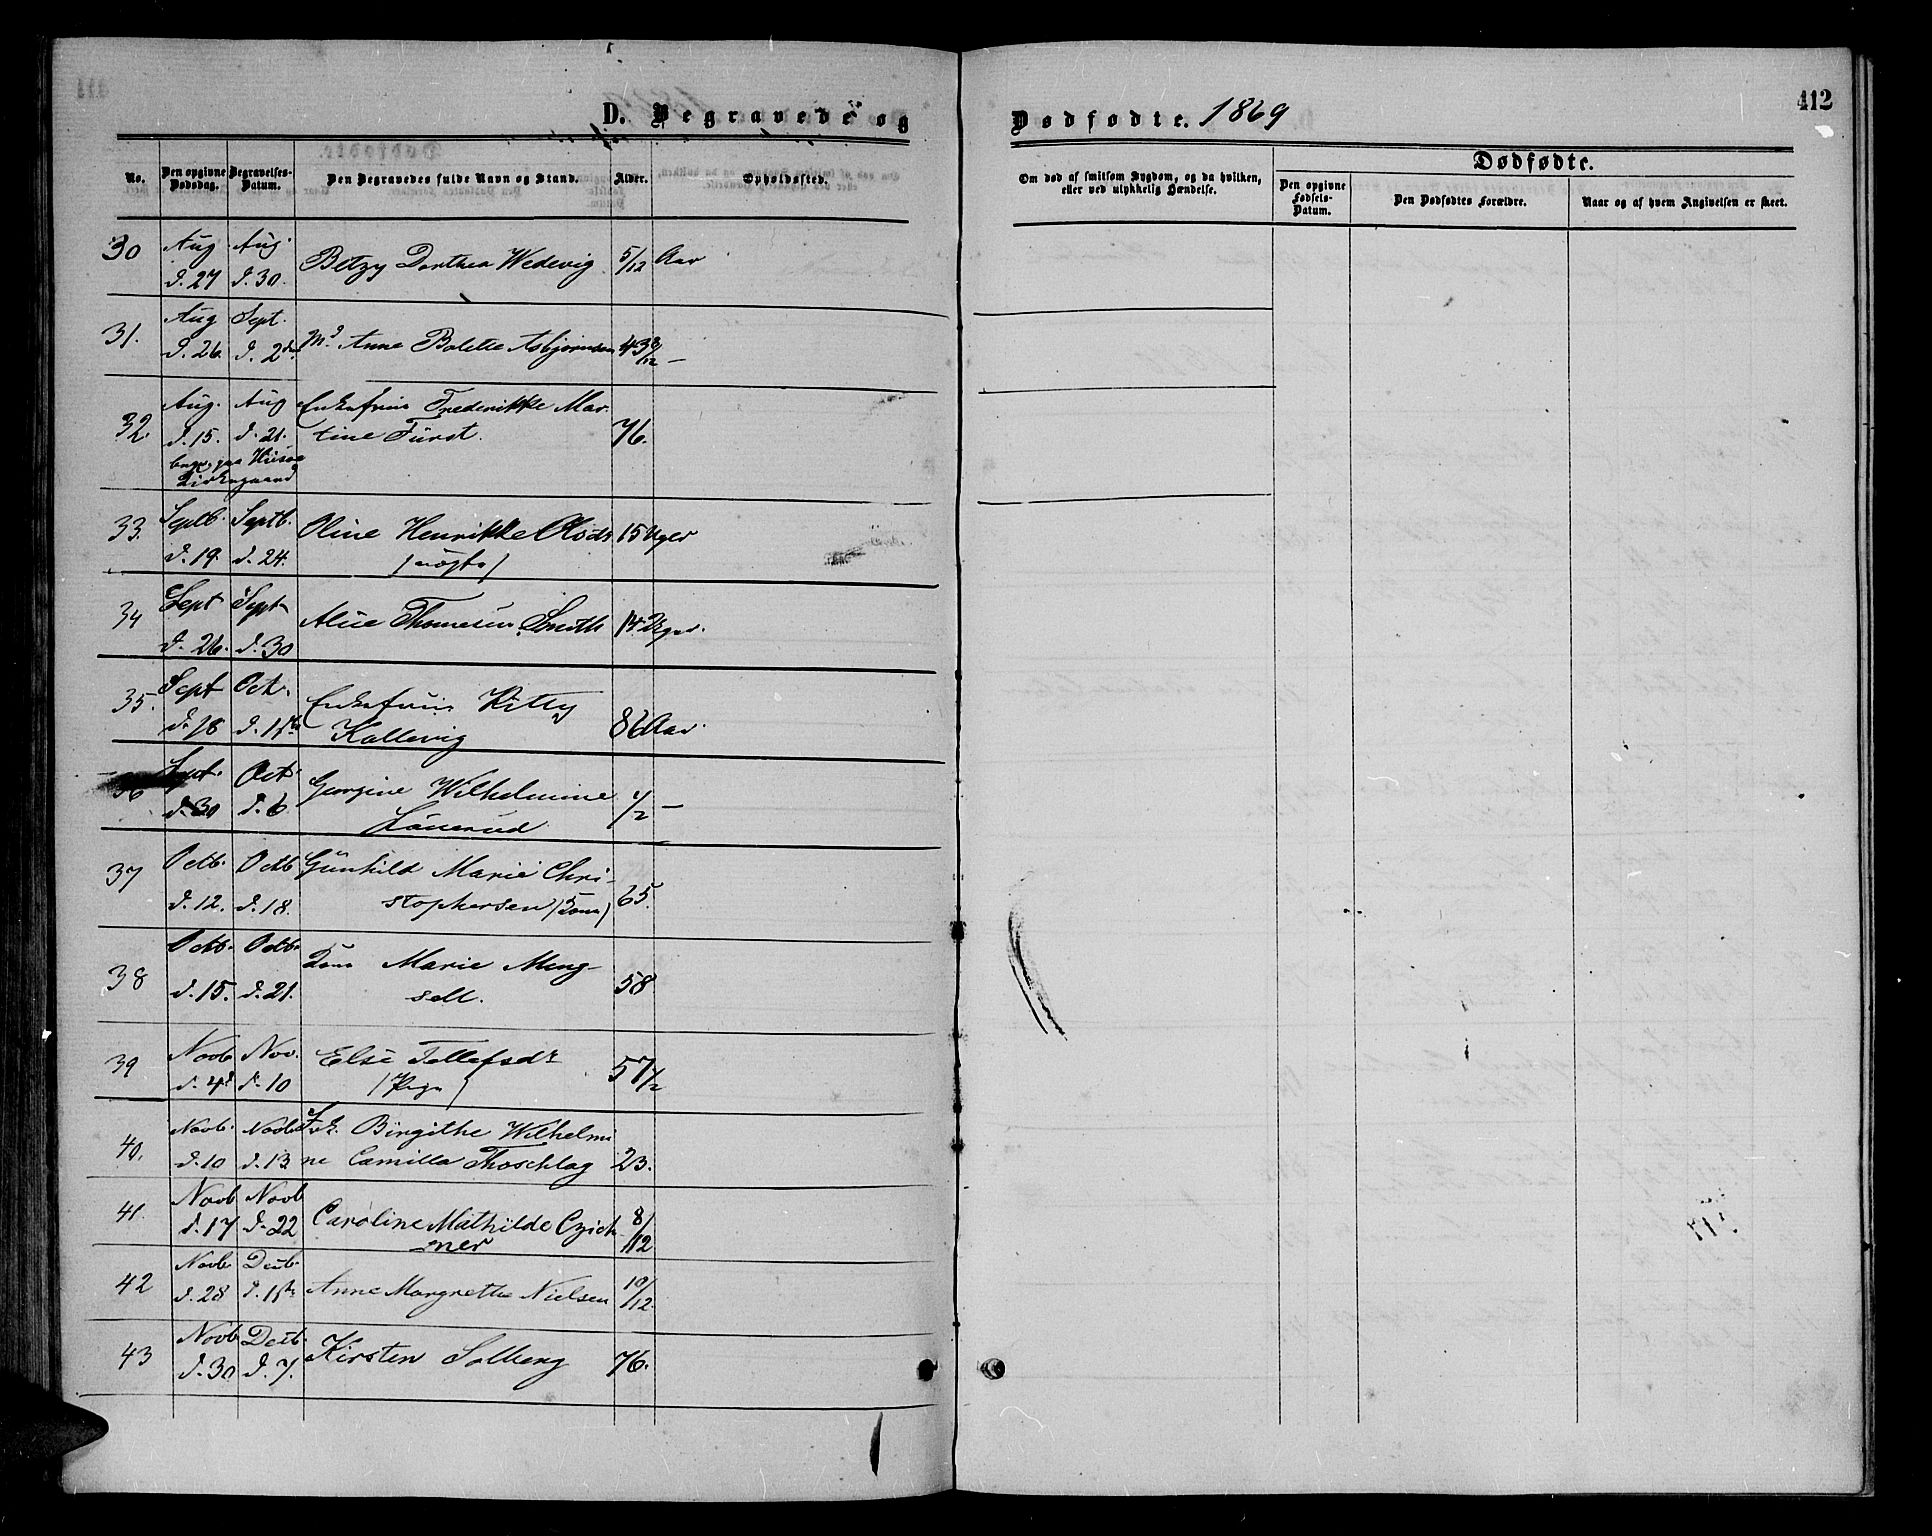 D. Begravede og
Dødfødte. 1869
412
No.
Den opgivne Dødsdag.
Begravelses-Datum.
Den Begravedes fulde Navn og Stand.
Alder.
Opholdssted.
Om død af smitsom Sygdom, og da hvilken,
eller ved ulykkelig Hændelse.
Dødfødte.
Den opgivne Fødsels-Datum.
Den Dødfødtes Forældre.
Naar og af hvem Angivelsen er skeet.
30 Aug d. 27 Aug. d. 30. Betzy Dorthea Wedevig 5/12 Aar
31. Aug d. 26. Sept. d. 2den Md Anne Bolette Asbjørnsen 43 8/12 —
32. Aug. d. 15. Aug d. 21. Enkefrue Frederikke Mar-
tine Fürst. 76.
begr. paa Hisøe
Kirkegaard
33. Septb. d. 19. Septb. d. 24. Oline Henrikke Olsdr 15 Uger
(uægte)
34 Sept d. 26. Sept d. 30 Alice Thomesen Smith 14 Uger.
35. Sept d. 28 Oct. d. 1ste Enkefrue Kitty
Kallevig 86 Aar.
36 Sept. d. 30 Oct. d. 6. Georgine Wilhelmine 1/2 —
Lønerud
37 Octb. d. 12. Octb d. 18. Gunhild Marie Chri-
stophersen (Kone) 65.
38 Octb. d. 15. Octb. d. 21. Kone Marie Meng-
sell. 58
39 Novb d. 4d Nov. d. 10 Else Tellefsdr
(Pige) 57 1/2
40. Novb. d. 10 Novb d. 13 Frk. Birgithe Wilhelmi
ne Camilla Thoschlag 23.
41. Novb d. 17 Novb d. 22 Caroline Mathilde Czich
ner 8/12
42 Novb d. 28 Decb. d. 1ste Anne Margrethe Nielsen 10/12
43 Novb d. 30 Decb. d. 7. Kirsten Solberg 76.